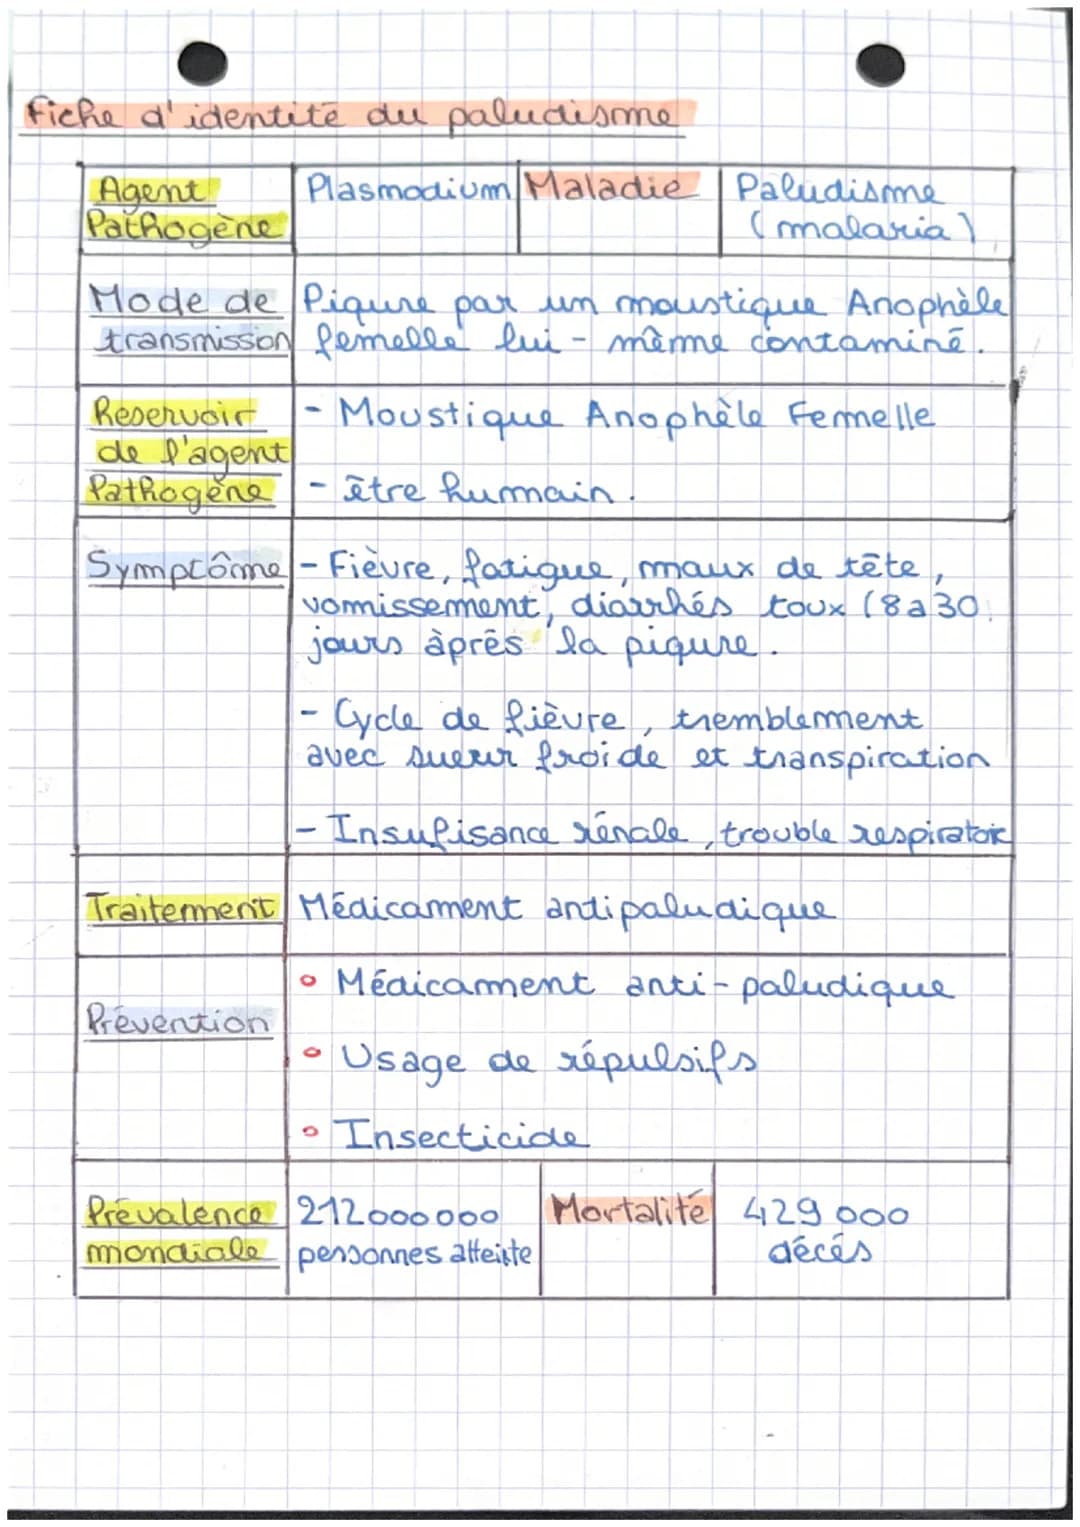 Fiche d'identité du paludisme
Agent Pathogène
Plasmodium
Maladie
Paludisme
(malaria)
Mode de transmission
Piqure par un moustique Anophèle
femelle lui-même contaminé.
Reservoir
de l'agent
Pathogène
- Moustique Anophèle Femelle
- être humain.
Symptôme
- Fièvre, fatigue, maux de tête,
vomissement, diarrhés toux (8 a 30
jours àprès la piqure.
- Cycle de fièvre, tremblement
avec sueur froide et transpiration
- Insufisance rénale, trouble respiratoire
Traitement
Médicament antipaludique
Prévention
° Médicament anti-paludique
° Usage de répulsifs
° Insecticide
Prévalence
mondiale
212000000
personnes atteinte
Mortalité
429 000
décés